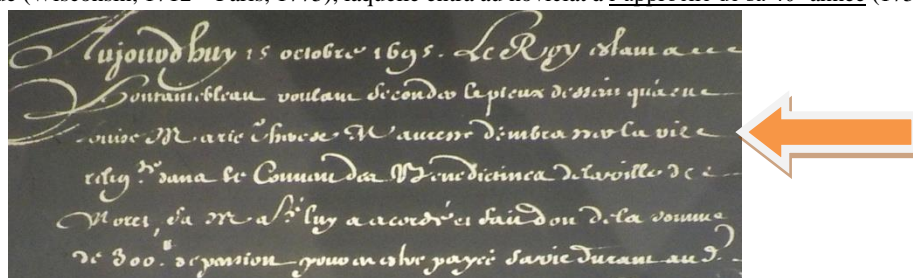 (Wisconsin, 1712 – Paris, 1775), laquelle entra au noviciat à l'approche de sa 40e année
Aujourdhuy 15 octobre 1695. Le Roy estant a
Fontainebleau voulant seconder le pieux dessein qu'a eue
Louise Marie Therese Mauresse d'embrasser la vie
relig.se dans le Convent des Benedictines de la ville de
Moret, Sa Ma.té luy a acordé et fait don de la somme
de 300. de pension pour en estre payée sa vie durant au d.